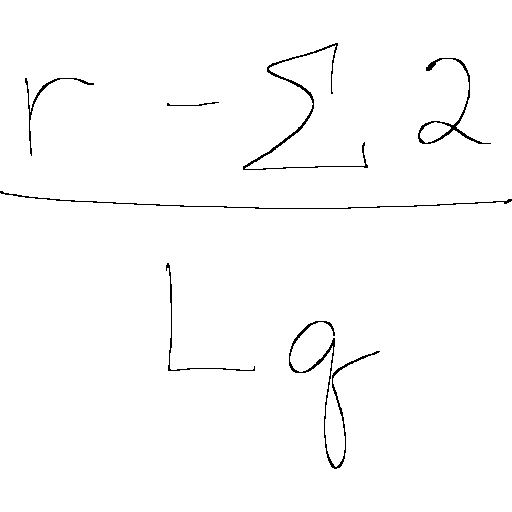 r - ∑ 2
L q